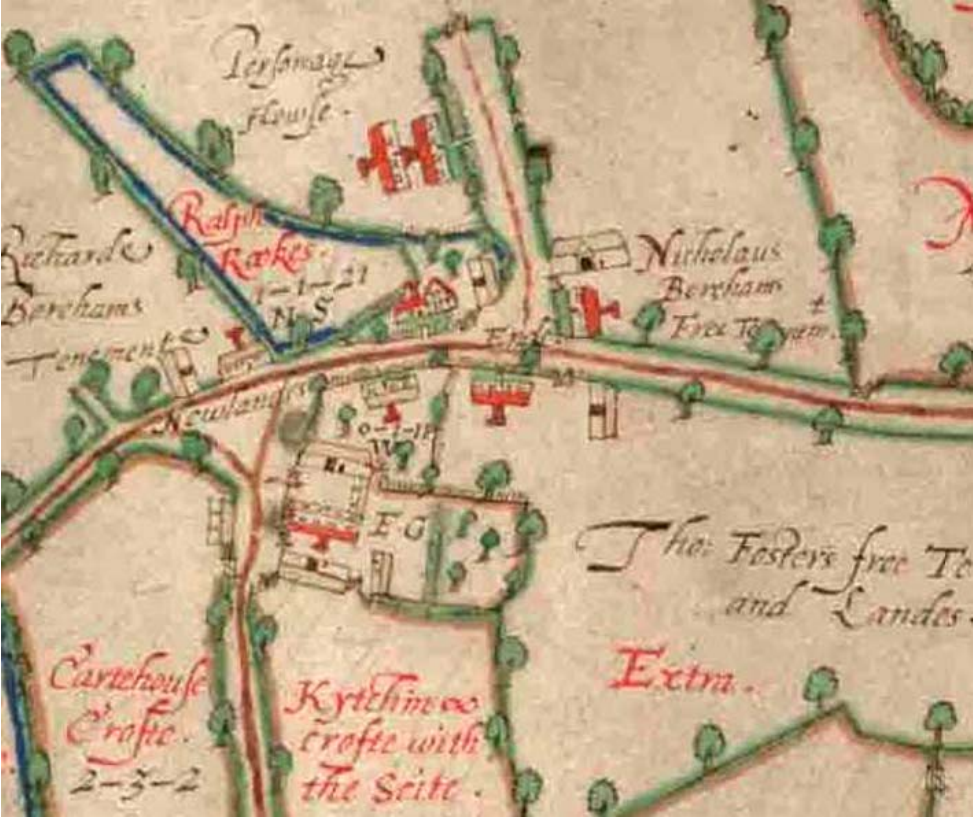 Personage
Howse.
Ralph
Rækes.
1-1-21
N S
Richard
Borehams
Tenement
Nicholaus
Borehams
Free Tenem.
Newlandes
0-1-18
W
F G
Tho: Fosters free Te
and Landes.
Extra.
Cartehouse
Crofte.
2-3-2
Kytchin
crofte with
the Scite.